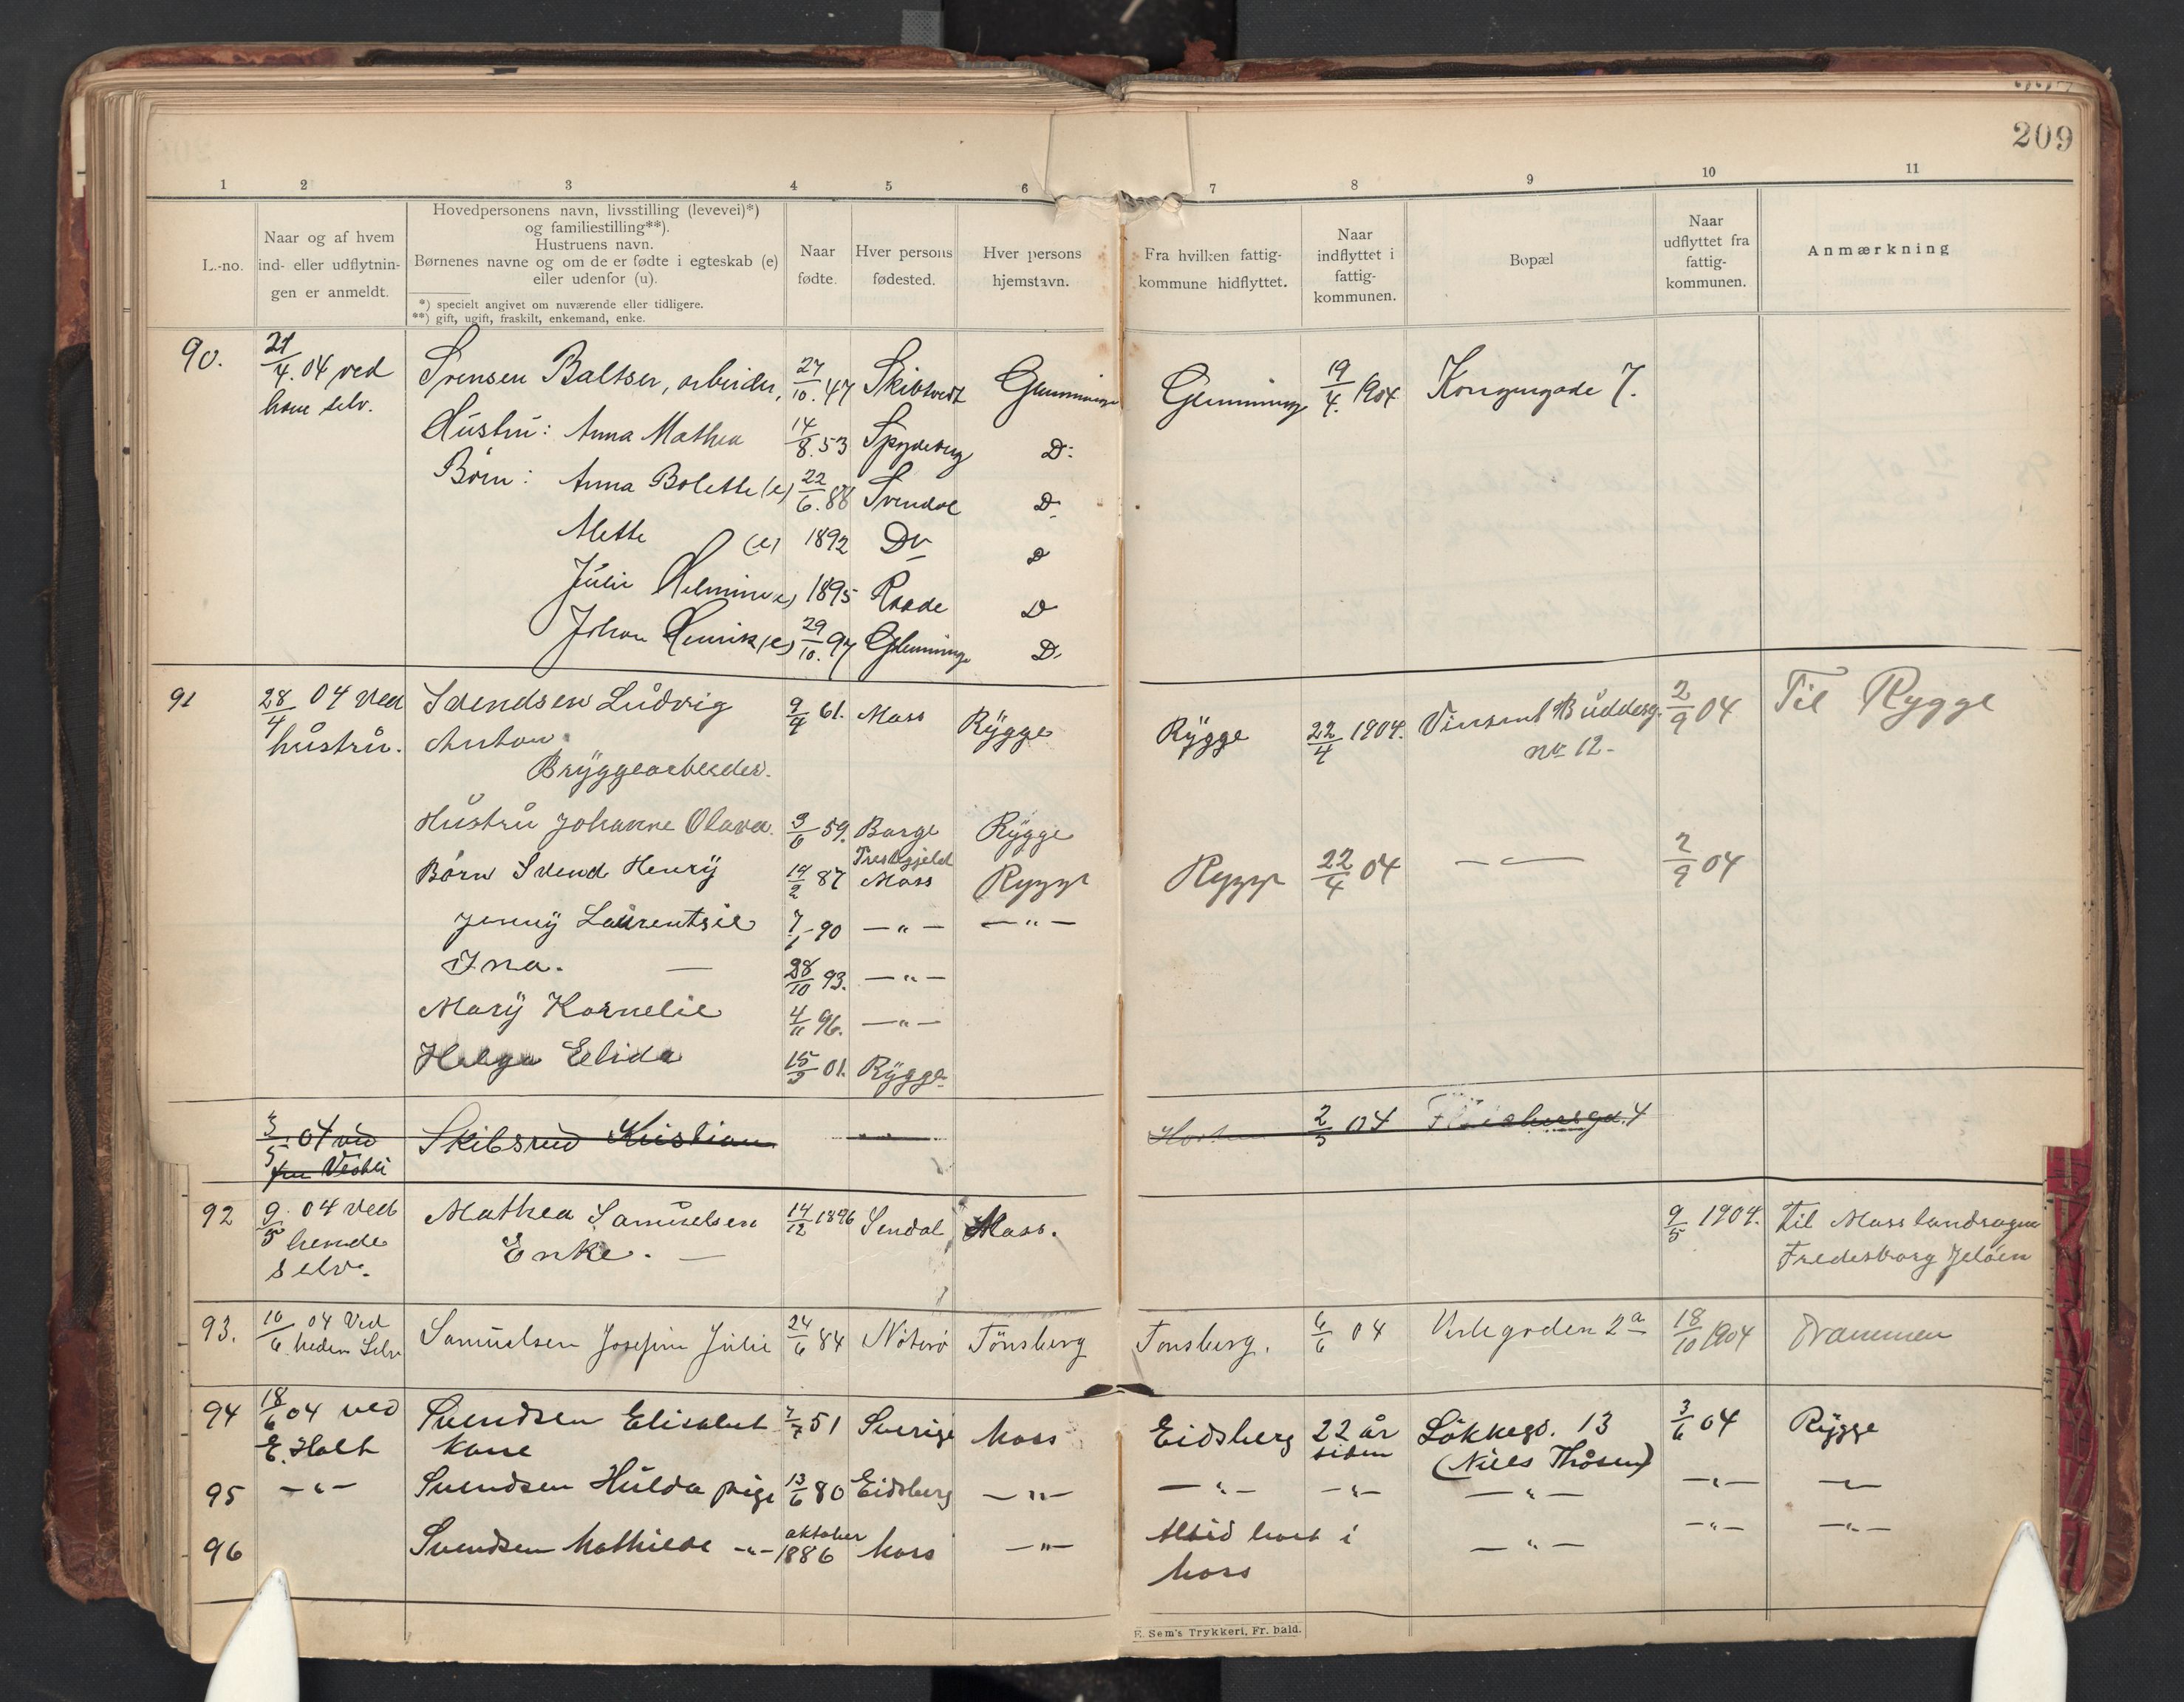 209
1 2 3 4 5 6 7 8 9 10 11
L.-no.
Naar og af hvem
ind- eller udflytnin-
gen er anmeldt.
Hovedpersonens navn, livsstilling (levevei)*)
og familiestilling**).
Hustruens navn.
Børnenes navne og om de er fødte i egteskab (e)
eller udenfor (u).
*) specielt angivet om nuværende eller tidligere.
**) gift, ugift, fraskilt, enkemand, enke.
Naar
fødte.
Hver persons
fødested.
Hver persons
hjemstavn.
Fra hvilken fattig-
kommune hidflyttet.
Naar
indflyttet i
fattig-
kommunen.
Bopæl
Naar
udflyttet fra
fattig-
kommunen.
Anmærkning
90. 21/4. 04 ved Svensen Baltser, arbeider, 27/10. 47 Skibtvedt Glemminge Glemminge 19/4. 1904 Kongensgade 7.
ham selv.
Hustru: Anna Mathea 14/8. 53 Spydeberg D:
Børn: Anna Bolette (e) 22/6. 88 Svendal D.
Mette (e) 1892 Do D
Julie Helmine (e) 1895 Raade D
Johan Henrik (e) 29/10. 97 Glemminge D.
91 28/4 04 Ved Svendsen Ludvig 9/4 61. Moss Rygge Rygge 22/4 1904. Vinsent Buddesg. 2/9 04 Til Rygge
hustru. Anton. nr 12.-
Bryggearbeider.
Hustru Johanne Olava. 3/6 59. Borge Rygge
Prestegjeld
Børn Svend Henry 14/2 87 Moss Rygge Rygge 22/4 04 — — 2/9 04
Jenny Laurentsie 7/1-90 — " — — " —
Ina. — 28/10 93. — " —
Mary Kornelie 4/11 96. — " —
Helga Elida 15/3 01. Rygge.
3/5. 04 ved Skibsrud Kristian — " — Horten 2/5 04 Fleichersgd. 4
fru Vestli
92 9/5. 04 Ved Mathea Samuelsen 14/12 1896 Sendal Moss. 9/5 1904. Til Moss landsogn
hende Enke. — Fredesborg Jeløen
selv.
93. 10/6 04 Ved Samuelsen Josefine Julie 24/6 84 Nøterø Tønsberg Tønsberg. 6/6 04 Verlegaden 2a 18/10 1904 Drammen
heden Selv
94 18/6 04 ved Svendsen Elisabet 7/7 51 Sverige Moss Eidsberg 22 år Løkkegd. 13 3/6 04 Rygge
E. Holt kone siden (Niels Thåsen)
95 — " — Svendsen Hulda pige 13/6 80 Eidsberg — " — — " — — " — — " — — " — — " —
96 Svendsen Mathilde — " — oktober Moss — " — Altid boet i — " — — " — — " —
1886 Moss
E. Sem's Trykkeri, Fr. hald.